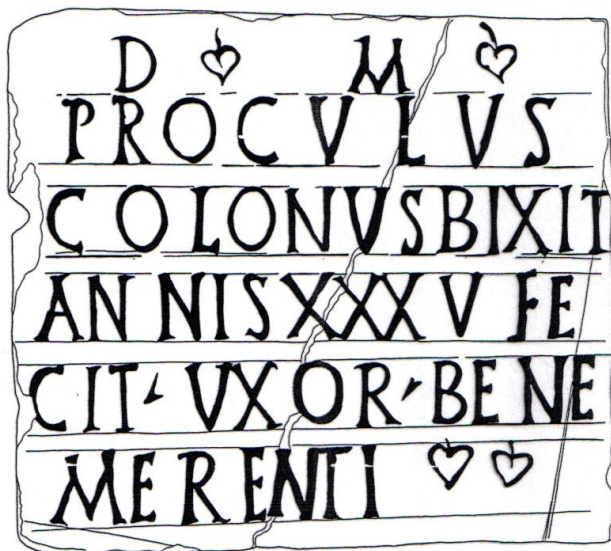 D ❦ M ❦
PROCVLVS
COLONVSBIXIT
ANNISXXXV FE
CIT ❜ VXOR ❜ BENE
MERENTI ❦ ❦